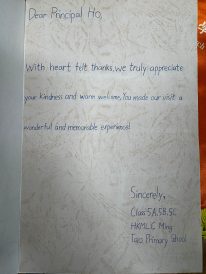 Dear Principal Ho,
With heart felt thanks, we truly appreciate
your kindness and warm welcome. You made our visit a
wonderful and memorable experience!
Sincerely,
Class 5A, 5B, 5C
HKMLC Ming
Tao Primary School